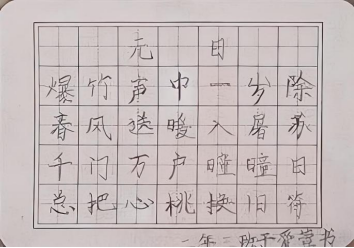 元日
爆竹声中一岁除
春风送暖入屠苏
千门万户瞳瞳日
总把心桃换旧符
一年二班于书